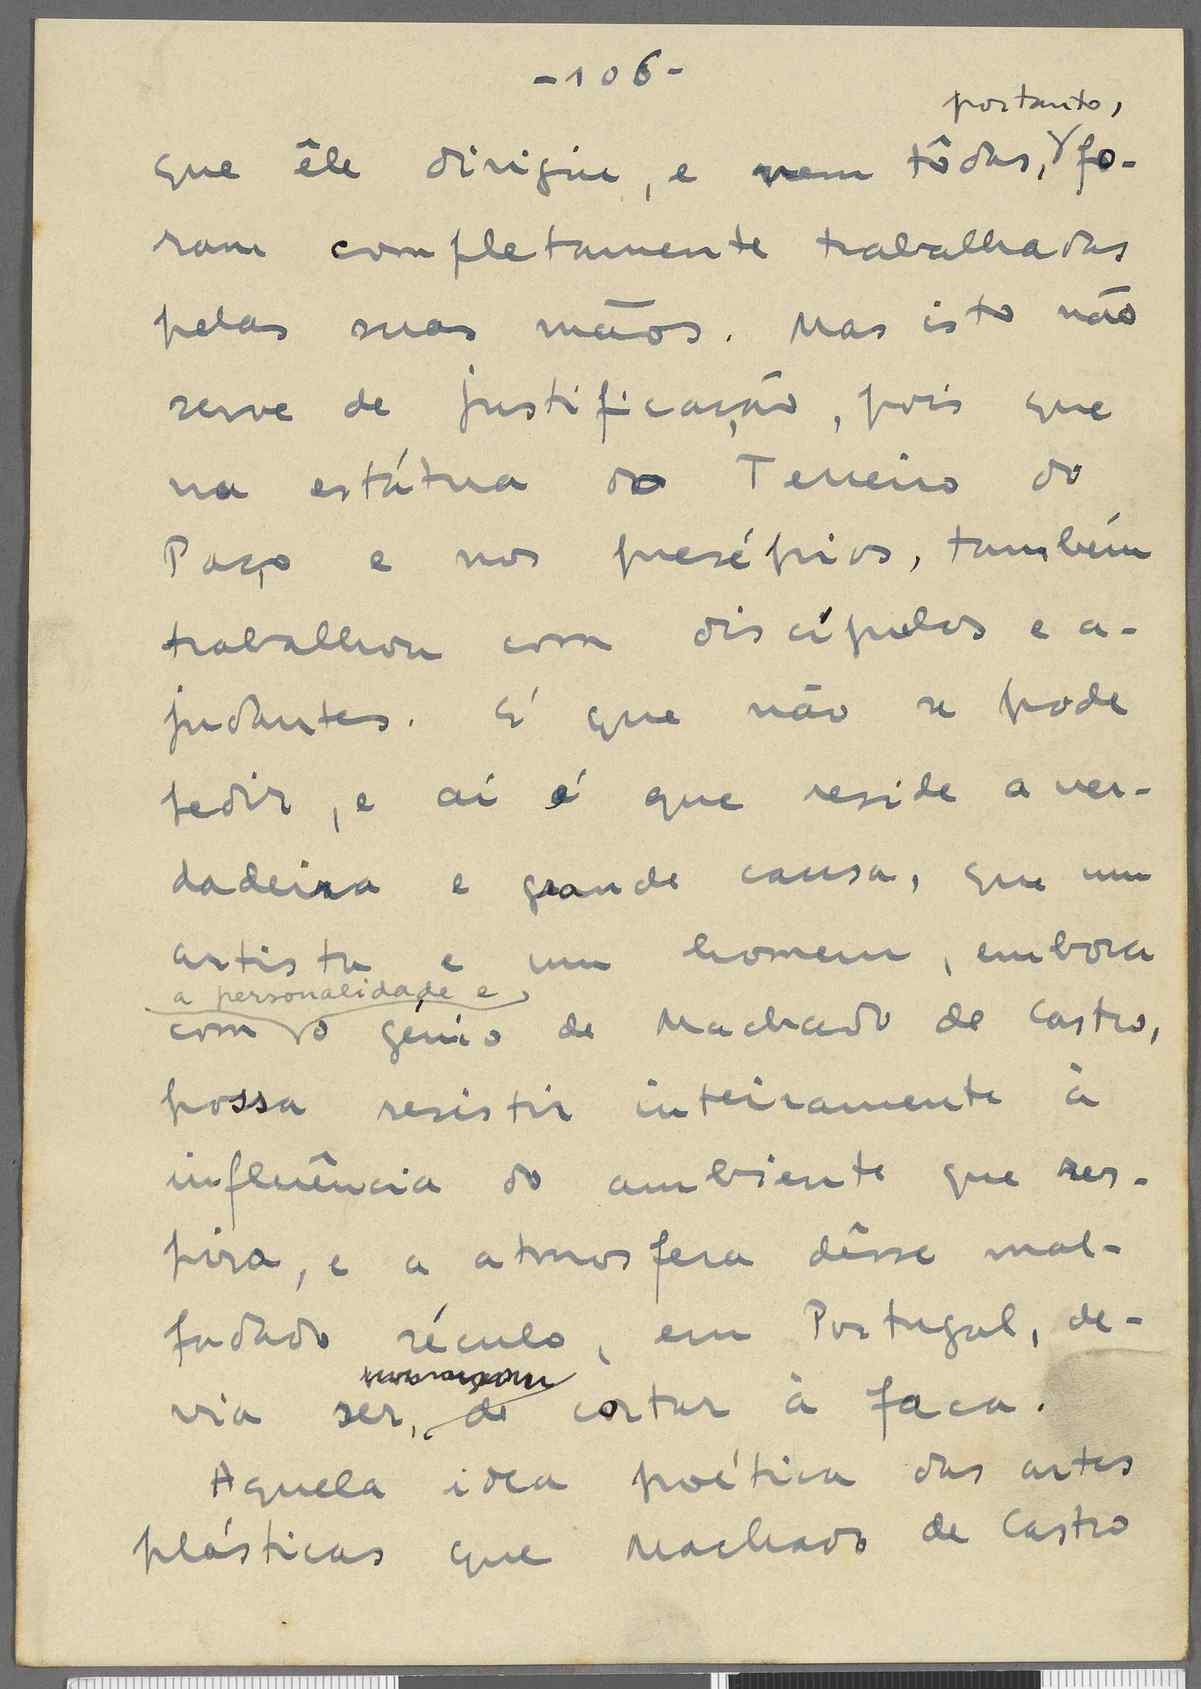 -106-
portanto,
que êle dirigiu, e nem tôdas, fo-
ram completamente trabalhadas
pelas suas mãos. Mas isto não
serve de justificação, pois que
na estátua do Terreiro do
Paço e nos presépios, também
trabalhou com discípulos e a-
judantes. E' que não se pode
pedir, e aí é que reside a ver-
dadeira e grande causa, que um
artista e um homem, embora
a personalidade e
com o génio de Machado de Castro,
possa resistir inteiramente à
influência do ambiente que res-
pira, e a atmosfera dêsse mal-
fadado século, em Portugal, de-
via ser, de cortar à faca.
Aquela idea poética das artes
plásticas que Machado de Castro